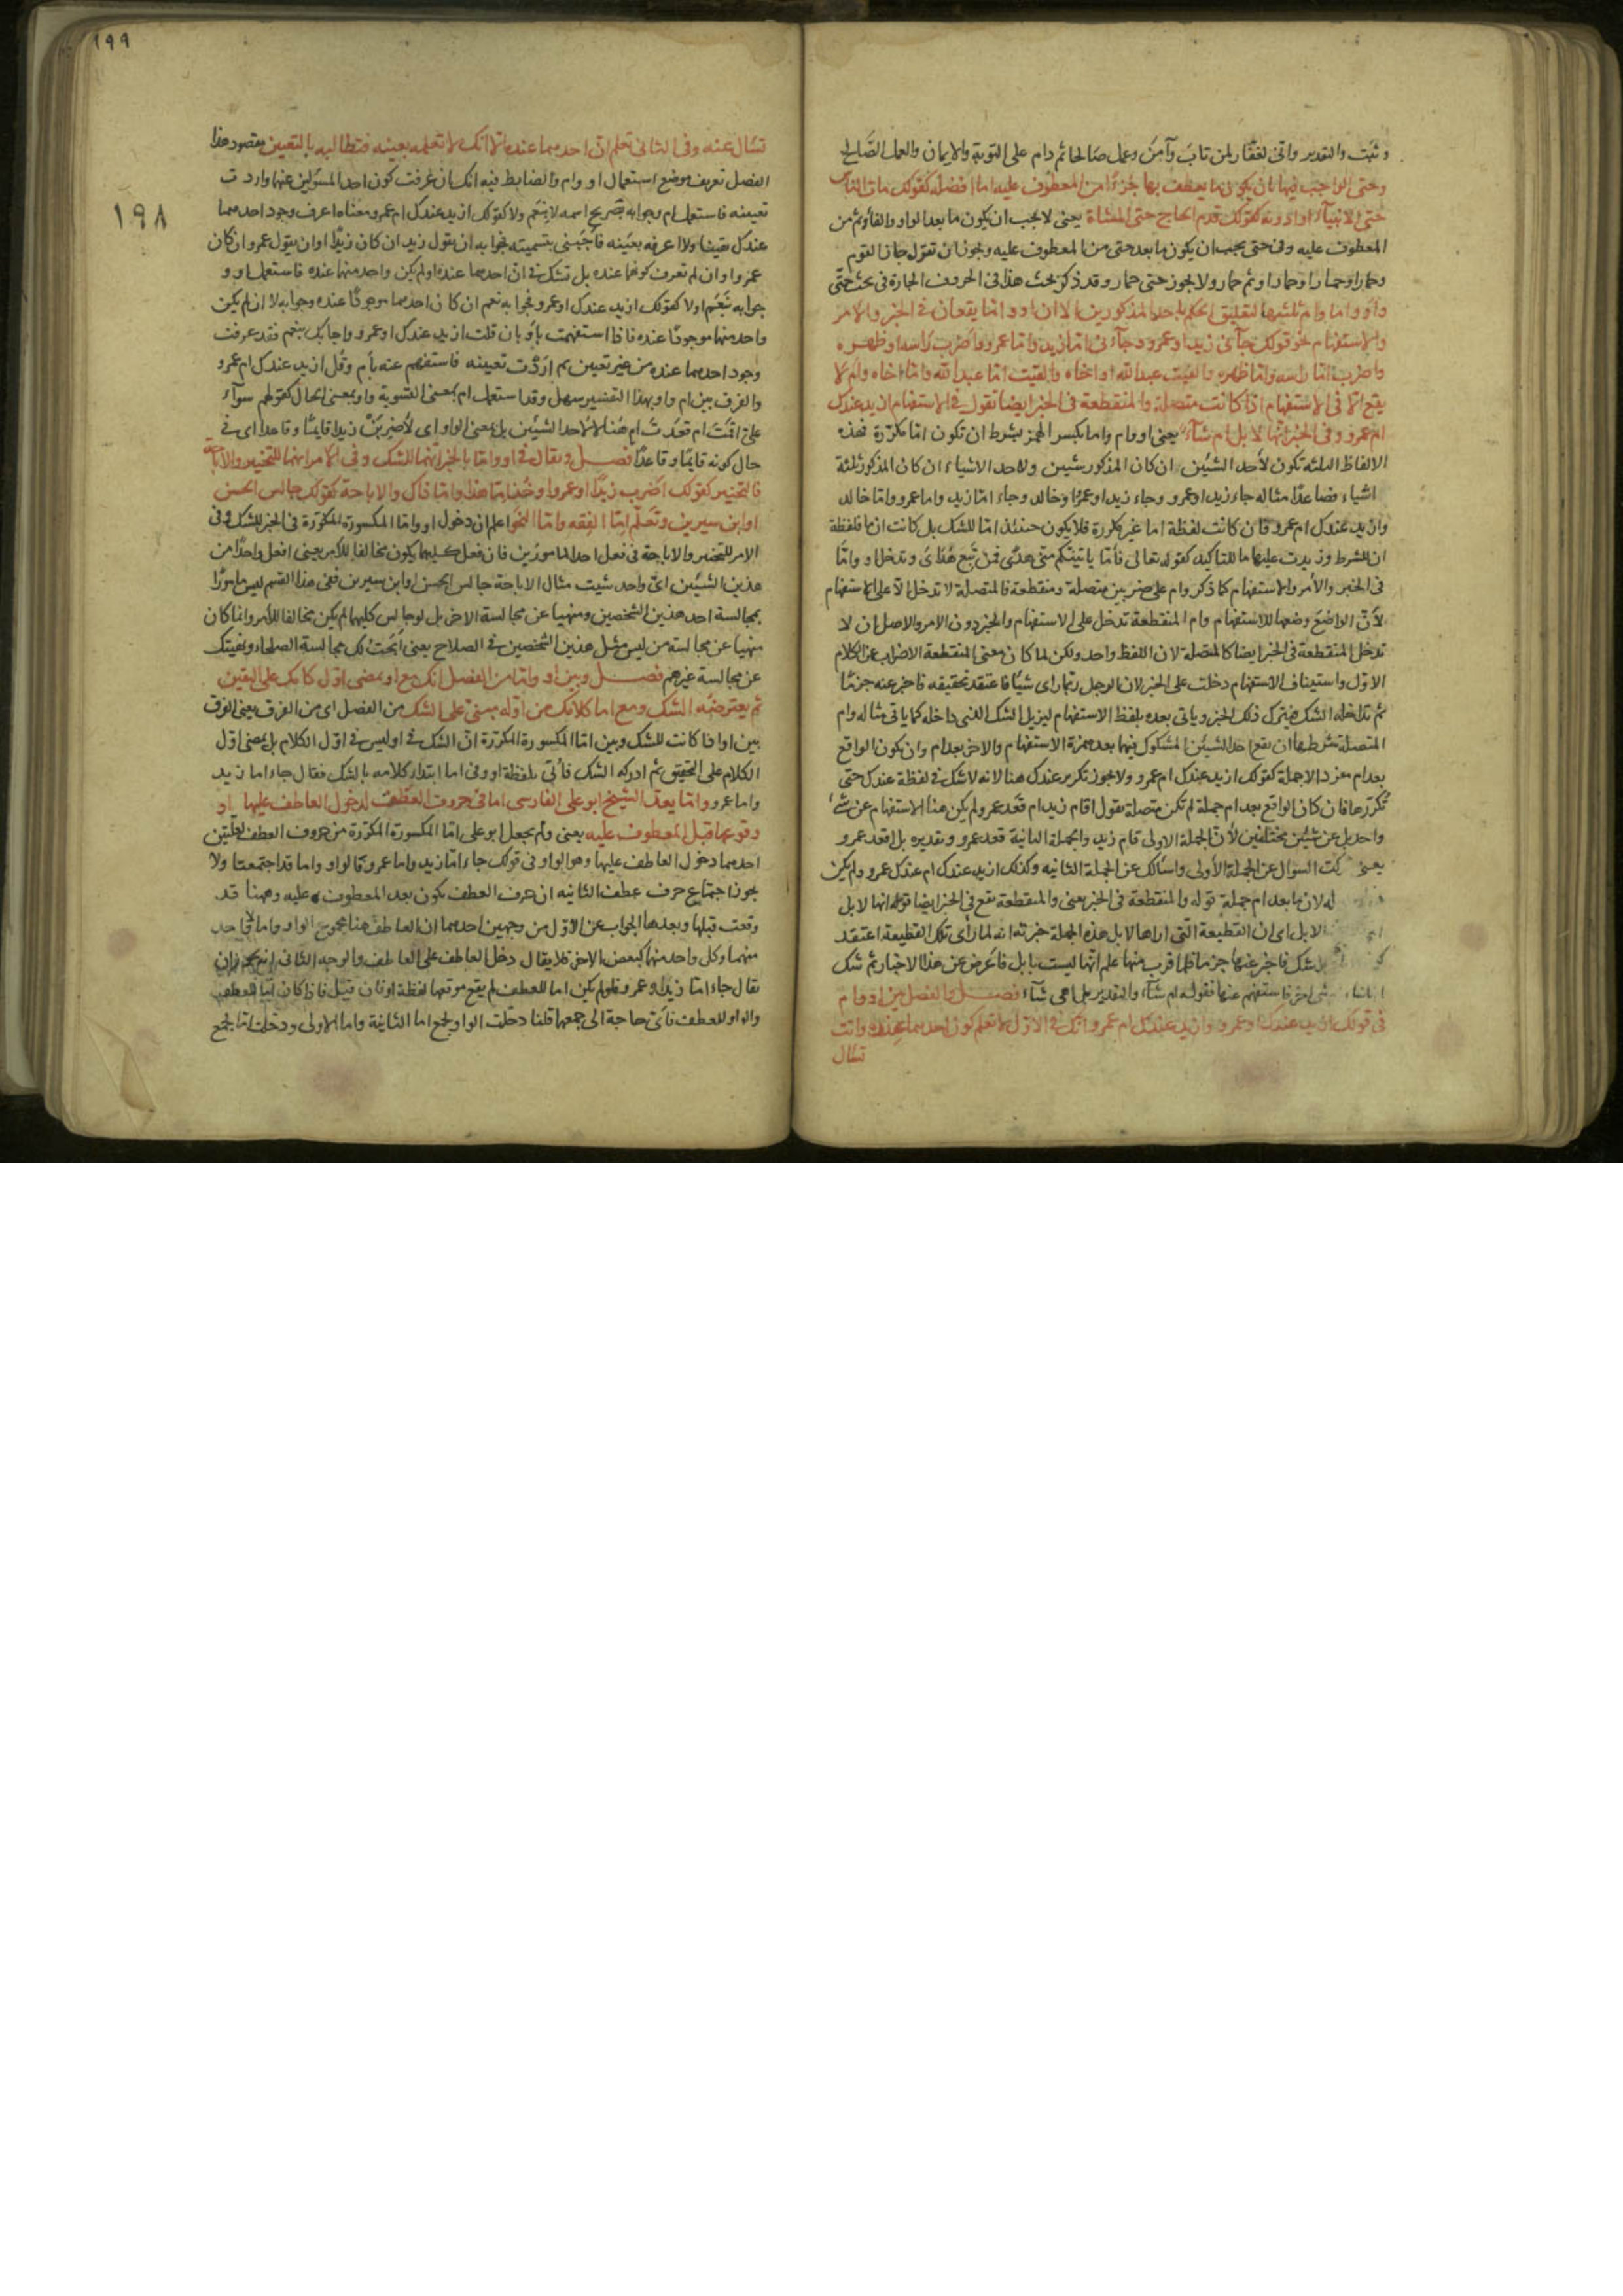 وثبت والتقدير واني لغفار لمن تاب وآمن وعمل صالحا ثم دام على التوبة والايمان والعمل الصالح
وحتى الواجب فيها ان يكون ما يعطف بها جزءا من المعطوف عليه اما افضله كقولك مات الناس
حتى الانبياء او ادونه كقولك قدم الحاج حتى المشاة يعنى لا يجب ان يكون ما بعد الواو والفاء وثم من
المعطوف عليه وفى حتى يجب ان يكون ما بعد حتى من المعطوف عليه ويجوز ان تقول جاز القوم
وحمارا وحمارا وحمارا وثم حمار ولا يجوز حتى حمار وقد ذكر بحث هذا فى الحروف الجارة فى بحث حتى
واو واما وام ثلثها لتعليق الحكم باحد المذكورين الا ان او واما يقعان فى الخبر والامر
والاستفهام نحو قولك جآءنى زيد او عمرو وجآءنى اما زيد واما عمرو واضرب راسه او ظهره
واضرب اما راسه واما ظهره والقيت عبد الله او اخاه والقيت اما عبد الله واما اخاه وام لا
يقع الا فى الاستفهام اذا كانت متصلة والمنقطعة فى الخبر ايضا تقول فى الاستفهام ازيد عندك
ام عمرو وفى الخبر انها لا بل ام شآء يعنى او وام واما بكسر الهمز بشرط ان تكون اما مكررة فهذه
الالفاظ الثلثة تكون لاحد الشيئين ان كان المذكور شيئين ولاحد الاشياء ان كان المذكور ثلثة
اشياء فصاعدا مثاله جاء زيد او عمرو وجاء زيد او عمرو او خالد وجاء اما زيد واما عمرو واما خالد
وازيد عندك ام عمرو فان كانت لفظة اما غير مكررة فلا يكون حينئذ اما للشك بل كانت ان ما فلفظة
ان للشرط وزيدت عليها ما للتاكيد كقوله تعالى فاما ياتينكم منى هدى فمن تبع هداى وتدخل او واما
فى الخبر والامر والاستفهام كما ذكر وام على ضربين متصلة ومنقطعة فالمتصلة لا تدخل الا على الاستفهام
لان الواضع وضعها للاستفهام وام المنقطعة تدخل على الاستفهام والخبر دون الامر والاصل ان لا
تدخل المنقطعة فى الخبر ايضا كالمتصلة لان اللفظ واحد ولكن لما كان معنى المنقطعة الاضراب عن الكلام
الاول واستيناف الاستفهام دخلت على الخبر لان الرجل ربما راى شيئا فاعتقد تحقيقه فاخبر عنه جزما
ثم تداخله الشك فيترك ذلك الخبر وياتى بعده بلفظ الاستفهام ليزيل الشك الذى داخله كما ياتى مثاله وام
المتصلة شرطها ان يقع احد الشيئين المشكوك فيهما بعد همزة الاستفهام والاخر بعد ام وان يكون الواقع
بعد ام مفردا لا جملة كقولك ازيد عندك ام عمرو ولا يجوز تكرير عندك هنا لانه لا شك فى لفظة عندك حتى
تكررها فان كان الواقع بعد ام جملة لم تكن متصلة تقول اقام زيد ام قعد عمرو ولم يكن هنا الاستفهام عن شىء
واحد بل عن شيئين مختلفين لان الجملة الاولى قام زيد والجملة الثانية قعد عمرو وتقديره بل اقعد عمرو
يعنى كت السوال عن الجملة الاولى واسالك عن الجملة الثانيه وكذلك ازيد عندك ام عندك عمرو وام يكن
له لان ما بعد ام جملة قوله والمنقطعة فى الخبر يعنى والمنقطعة تقع فى الخبر ايضا قوله انها لا بل
لا بل اى ان القطيعة التى اراها لا بل هذه الجملة خبرية انه لما راى تلك القطيعة اعتقد
شك فاخبر عنها جزما فلما قرب منها علم انها ليست بابل فاعرض عن هذا الاخبار ثم شك
شى اخر فاستفهم عنها فقوله ام شآء والتقدير بل اهى شآء فصل والفصل بين او وام
فى قولك ازيد عندك او عمرو وازيد عندك ام عمرو انك فى الاول لا تعلم كون احدهما عنده وانت
تسال
١٩٩
١٩٨
تسال عنه وفى الثانى تعلم ان احدهما عنده الا انك لا تعلمه بعينه فتطالبه بالتعيين مقصود هذا
الفصل تعريف موضع استعمال او وام والضابط فيه انك ان عرفت كون احد المسئولين عنهما واردت
تعيينه فاستعمل ام وجوابه تصريح اسمه لا بنعم ولا كقولك ازيد عندك ام عمرو معناه اعرف وجود احدهما
عندك يقينا ولا اعرفه بعينه فاجبنى بتسميته فجوابه ان يقول زيد ان كان زيدا او ان يقول عمرو ان كان
عمروا وان لم تعرف كونهما عنده بل تشك فى ان احدهما عنده او لم يكن واحد منهما عنده فاستعمل او و
جوابه بنعم او لا كقولك ازيد عندك او عمرو فجوابه نعم ان كان احدهما موجودا عنده وجوابه لا ان لم يكن
واحد منهما موجودا عنده فاذا استفهمت باو بان قلت ازيد عندك او عمرو واجابك بنعم فقد عرفت
وجود احدهما عنده من غير تعيين ثم اردت تعيينه فاستفهم عنه بام وقل ازيد عندك ام عمرو
والفرق بين ام واو بهذا التفسير سهل وقد استعمل ام بمعنى التسوية واو بمعنى الحال كقولهم سوآء
على اقمت ام قعدت ام هنا لا لاحد الشيئين بل بمعنى الواو اى لاضربن زيدا قايما وقاعدا اى فى
حال كونه قايما وقاعدا فصل ويقال فى او واما بالخبر انهما للشك وفى الامر انهما للتخيير والاباحة
فالتخيير كقولك اضرب زيدا او عمروا وخذ اما هذا واما ذاك والاباحة كقولك جالس الحسن
او ابن سيرين وتعلم اما الفقه واما النحو اعلم ان دخول او واما المكسورة المكررة فى الخبر للشك وفى
الامر للتخيير والاباحة فى فعل احد المامورين فان فعل كليهما يكون مخالفا للامر يعنى افعل واحدا من
هذين الشيئين اى واحد شيت مثال الاباحة جالس الحسن او ابن سيرين ففى هذا القسم ليس مامورا
بمجالسة احد هذين الشخصين ومنهيا عن مجالسة الاخر بل لو جالس كليهما لم يكن مخالفا للامر وانما كان
منهيا عن مجالسة من ليس مثل هذين الشخصين فى الصلاح يعنى ابحت لك مجالسة الصلحاء ونهيتك
عن مجالسة غيرهم فصل وبين او واما من الفصل انك مع او يمضى اول كلامك على اليقين
ثم يعترضه الشك ومع اما كلامك من اوله مبنى على الشك من الفصل اى من الفرق يعنى الفرق
بين او اذا كانت للشك وبين اما المكسورة المكررة ان الشك فى او ليس فى اول الكلام بل يمضى اول
الكلام على التحقيق ثم ادركه الشك فاتى بلفظة او وفى اما ابتداء كلامه بالشك فقال جاء اما زيد
واما عمرو واما يعد الشيخ ابو على الفارسى اما فى حروف العطف لدخول العاطف عليها او
وقوعها قبل المعطوف عليه يعنى ولم يجعل ابو على اما المكسورة المكررة من حروف العطف لعلتين
احدهما دخول العاطف عليها وهو الواو فى قولك جاء اما زيد واما عمرو فالواو واما قد اجتمعتا ولا
يجوز اجتماع حرف عطف الثانيه ان حرف العطف يكون بعد المعطوف عليه وههنا قد
وقعت قبلها وبعدها الجواب عن الاول من وجهين احدهما ان العاطف هنا مجموع الواو واما لا
منهما وكل واحد منهما كبعض الاخر فلا يقال دخل العاطف على العاطف والوجه الثانى انه يجوز ان
يقال جاء اما زيد وعمرو فلو لم يكن اما للعطف لم يقع موقعها لفظة او فان قيل فاذا كان اما للعطف
والواو للعطف فاى حاجة الى جمعهما قلنا دخلت الواو لجمع اما الثانية واما الاولى ودخلت اما لجمع